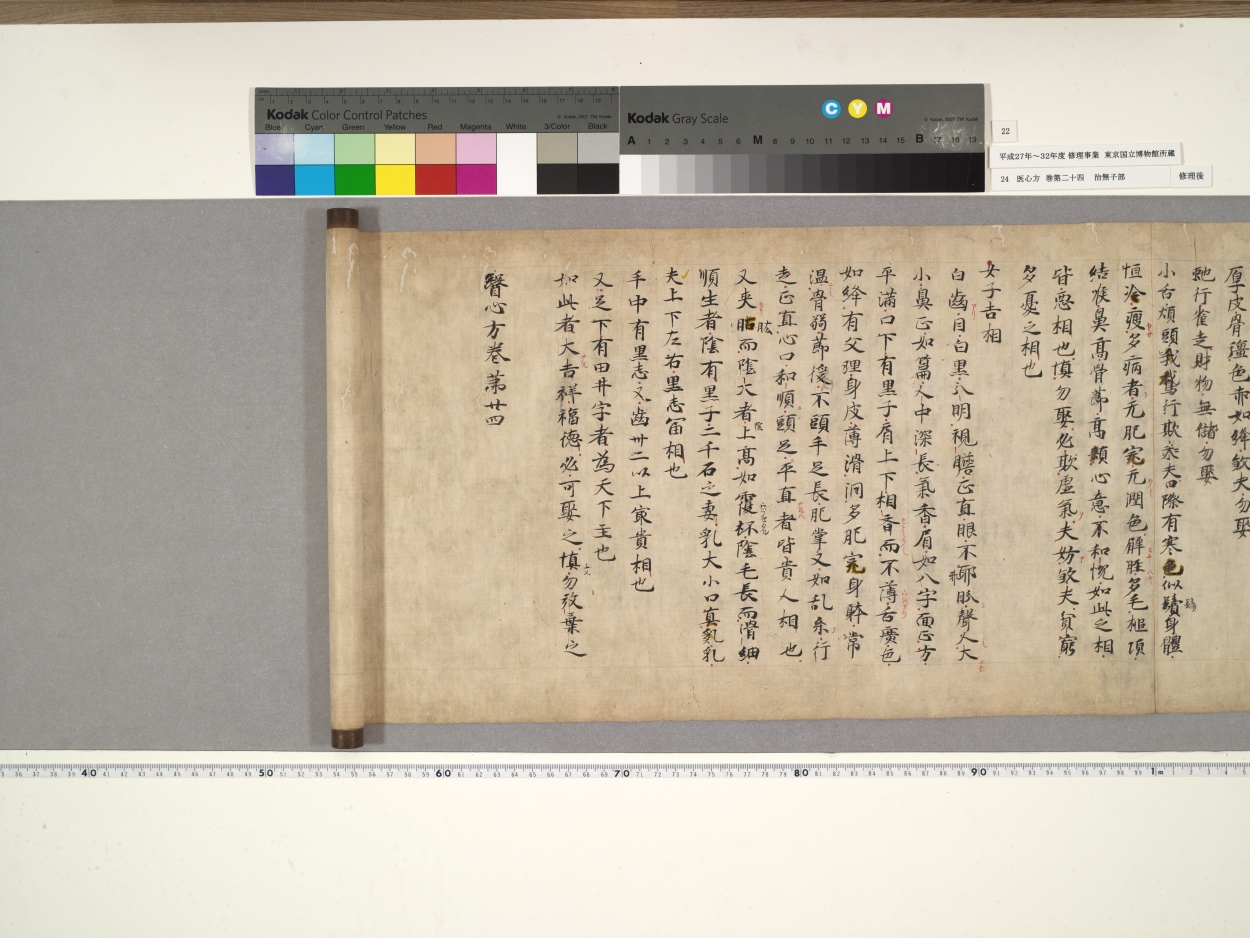 Kodak Color Control Patches
Blue Cyan Green Yellow Red Magenta White 3/Color Black
Kodak Gray Scale
C Y M
A 1 2 3 4 5 6 M 8 9 10 11 12 13 14 15 B 17 18 19
22
平成27年～32年度 修理事業 東京国立博物館所蔵
24 医心方 巻第二十四 治無子部 修理後
厚皮骨強色赤如絳煞夫勿娶
虵行雀走財物無儲勿娶
小舌煩頭鵞行欺夫口際有寒毛似鬚身體
恒冷瘦多病者无肥完无潤色髀脛多毛槌項
結喉鼻高骨節高顆心意不和悅如此之相
皆惡相也慎勿娶必欺虛氣夫妨煞夫貧窮
多憂之相也
女子吉相
白齒目白黑分明視瞻正直眼不耶眄聲不大
小鼻正如篇人中深長氣香眉如八字面正方
平滿口下有黑子脣上下相當而不薄舌廣色
如絳有父理身皮薄滑潤多肥完身體常
溫骨弱節僾不頭手足長肥掌文如乱糸行
走正直心口和順頭足平直者皆貴人相也
又夾脇而陰大者上高如覆杯陰毛長而滑細
順生者陰有黑子二千石之妻乳大小口真乳乳
夫上下左右黑志富相也
手中有黑志又齒卅二以上寂貴相也
又足下有田井字者為天下主也
如此者大吉祥福德必可娶之慎勿放棄之
醫心方卷苐廿四
40 50 60 70 80 90 1m